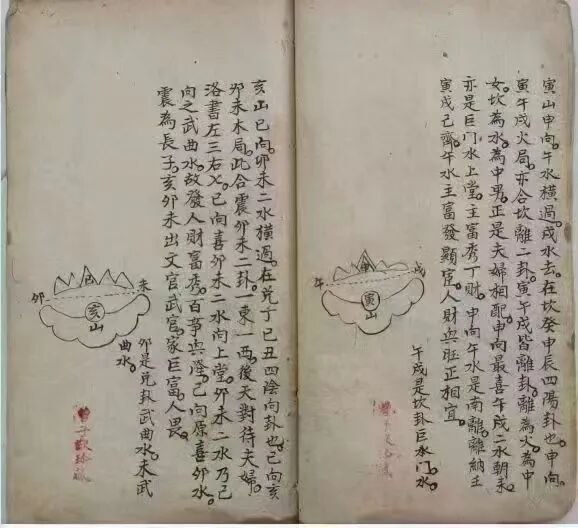 寅山申向。午水橫過。戌水去。在坎癸申辰四陽卦也。申向。
寅午戌火局。亦合坎離二卦。寅午戌皆離卦。離為火。為中
女。坎為水。為中男。正是夫婦相配。申向最喜午戌二水朝來。
亦是巨门水上堂。主富秀丁財。申向午水是南離。離納壬
寅戌已齊。午水主富發顯宦。人財興旺正相宜。
午戌是坎卦巨门水。
戌
申
午
寅山
亥山巳向。卯未二水橫過。在兌丁巳丑四陰向卦也。巳向亥
卯未木局。此合震卯未二卦。一東一西。後天對待夫婦。
洛書左三右七。巳向喜卯未二水向上堂。卯未二水乃巳
向之武曲水。故發人財富秀。百事興隆。巳向原喜卯水。
震為長子。亥卯未出文官武官。家巨富。人畏。
未
巳
卯
亥山
卯是兌卦武曲水。未武
曲水。